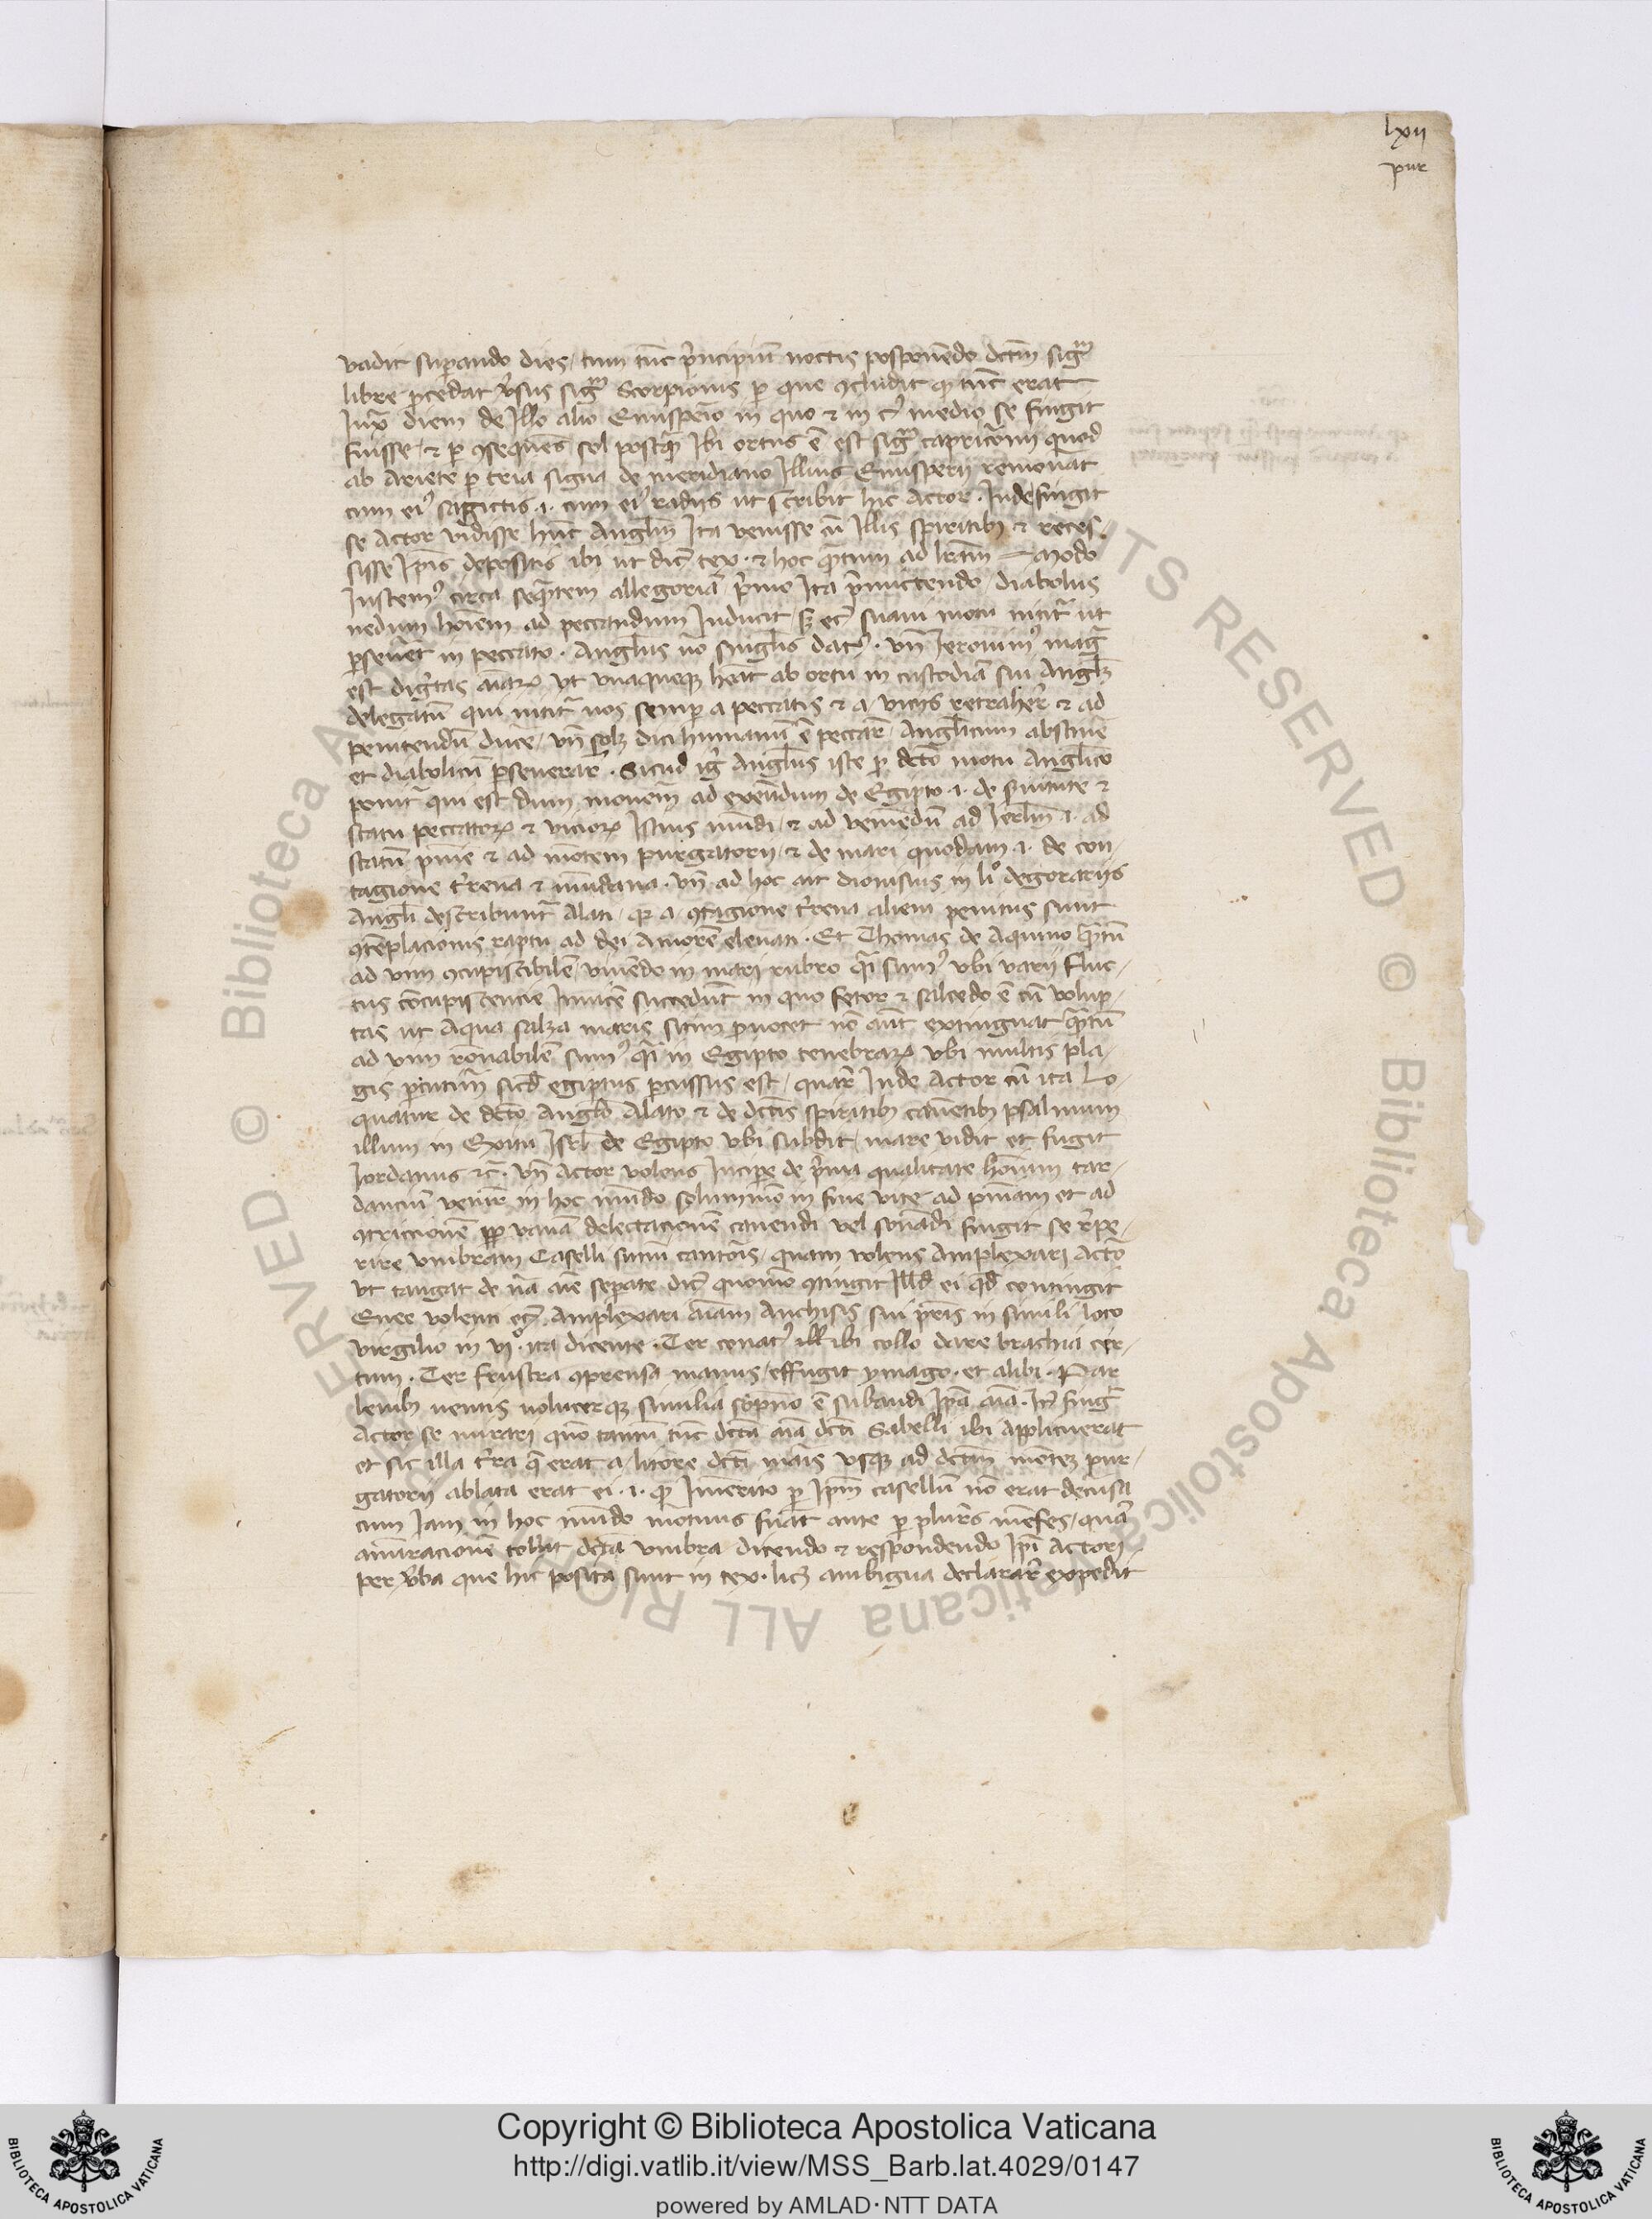 lxii
pur
vadit superando dies, cum tunc principium noctis posponendo dictum signum
libre precedat versus signum Scorpionis per que concludit quod tunc erat
Iuxta diem de Illo alio Emisperio in quo et in eius medio se fingit
fuisse, et per consequens sol postquam Ibi ortus est signum capricorni quod
ab Ariete per tria signa de meridiano Illius Emisperii removeat
cum eius sagittis .i. cum eius radiis ut scribit hic Actor. Inde fingit
se Actor vidisse hunc Anglum Ita venisse cum Illis spiritibus et reces-
sisse Ipsis depositis ibi ut dicit tex. et hoc quantum ad licteram modo
Instemus circa sequentem allegoriam primo Ita premictendo, diabolus
nedum hominem ad peccandum Inducit, sed etiam suavi motu nititur ut
perseveret in peccato. Angelus vero singulis datus. unde Ieronimus magna
est dignitas animarum ut unaqueque habeat ab ortu in custodiam sui Angelum
delegatum qui nititur nos semper a peccatis et a vitiis retrahere et ad
penitendum ducere, unde solet dici humanum est peccare Angelicum abstinere
et diabolicum perseverare. Sicud igitur Angelus iste per dicto motu Angelico
ponitur qui est dum movemur ad exeundum de Egipto .i. de servitute et
statu peccatorum et viciorum Istius mundi, et ad veniendum ad Ierusalem .i. ad
statum penitentie et ad montem purgatorii et de mari quodam .i. de con-
tagione terrena et mundana. unde ad hoc ait dionisius in libro de gerarciis
Angeli describuntur Alati, quia a contagione terrena alieni penitus sunt
contemplationis raptu ad dei Amorem elevati. Et Thomas de Aquino quantum
ad vim concupiscibilem vivendo in mari rubro quasi sumus ubi varii fluc-
tus concupiscencie Invicem succedunt in quo fetor et salcedo est cum volup-
tas ut Aqua salza maris sitim provocet non autem extinguat quantum
ad vim rationabilem sumus quasi in Egipto tenebrarum ubi multis pla-
gis percutimur sicud egiptus percussus est, quare Inde Actor cum ita lo-
quatur de dicto Angelo Alato et de dictis spiritibus canentibus psalmum
illum in Exitu Israel de Egipto ubi subdit, mare vidit et fugit
Iordanus etc. unde Actor volens Incipere de prima qualitate hominum tar-
dancium venire in hoc mundo solummodo in fine vite ad penitentiam et ad
contricionem propter vanam delectacionem canendi vel sonandi fingit se repe-
rire umbram Caselli summi cantoris, quam volens Amplexari Actor
ut tangat de natura anime separate dicit quomodo contingit Illud ei quod contingit
Enee volenti etiam Amplexari animam Anchisis sui patris in simili loco
virgilio in vi° ita dicente. Ter conatus illi ibi collo dare brachia cir-
cum. Ter frustra conprensa manus, effugit ymago. et alibi. Par
levibus ventis volucrique similia sopno est subaudi Ipsa anima. Item fingit
Actor se mirari quomodo tantum tunc dicta anima dicti Sabelli ibi Applicuerat
et sic illa terra que erat a litore dicti maris usque ad dictum montem pur-
gatorii ablata erat ei .i. quia Inmerito per Ipsum casellum non erat decursa
cum Iam in hoc mundo mortuus fuerat ante per plures menses, quam
amiracionem tollit dicta umbra dicendo et respondendo Ipsi Actori
per verba que hic posita sunt in tex. licet ambigua declarare expedit
Copyright © Biblioteca Apostolica Vaticana
http://digi.vatlib.it/view/MSS_Barb.lat.4029/0147
powered by AMLAD·NTT DATA
BIBLIOTECA APOSTOLICA VATICANA
BIBLIOTECA APOSTOLICA VATICANA